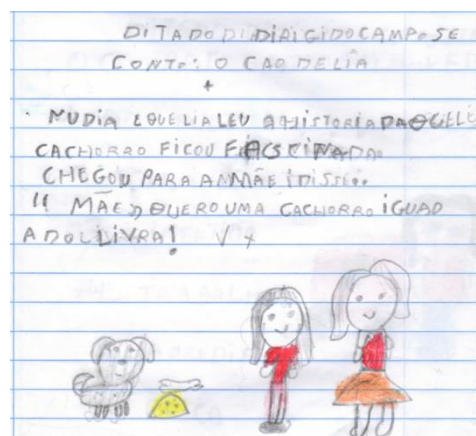 DITADO DI DIRIGIDO CAMPO SE
CONTO: O CAO DE LIA
NUDIA LOUE LIA LEU A HISTORIA DAQUELE
CACHORRO FICOU FASCINADA
CHEGOU PARA A MMÃE I DISSE:
" MÃE" QUERO UMA CACHORRO IGUAD
A DOLLIVRA!